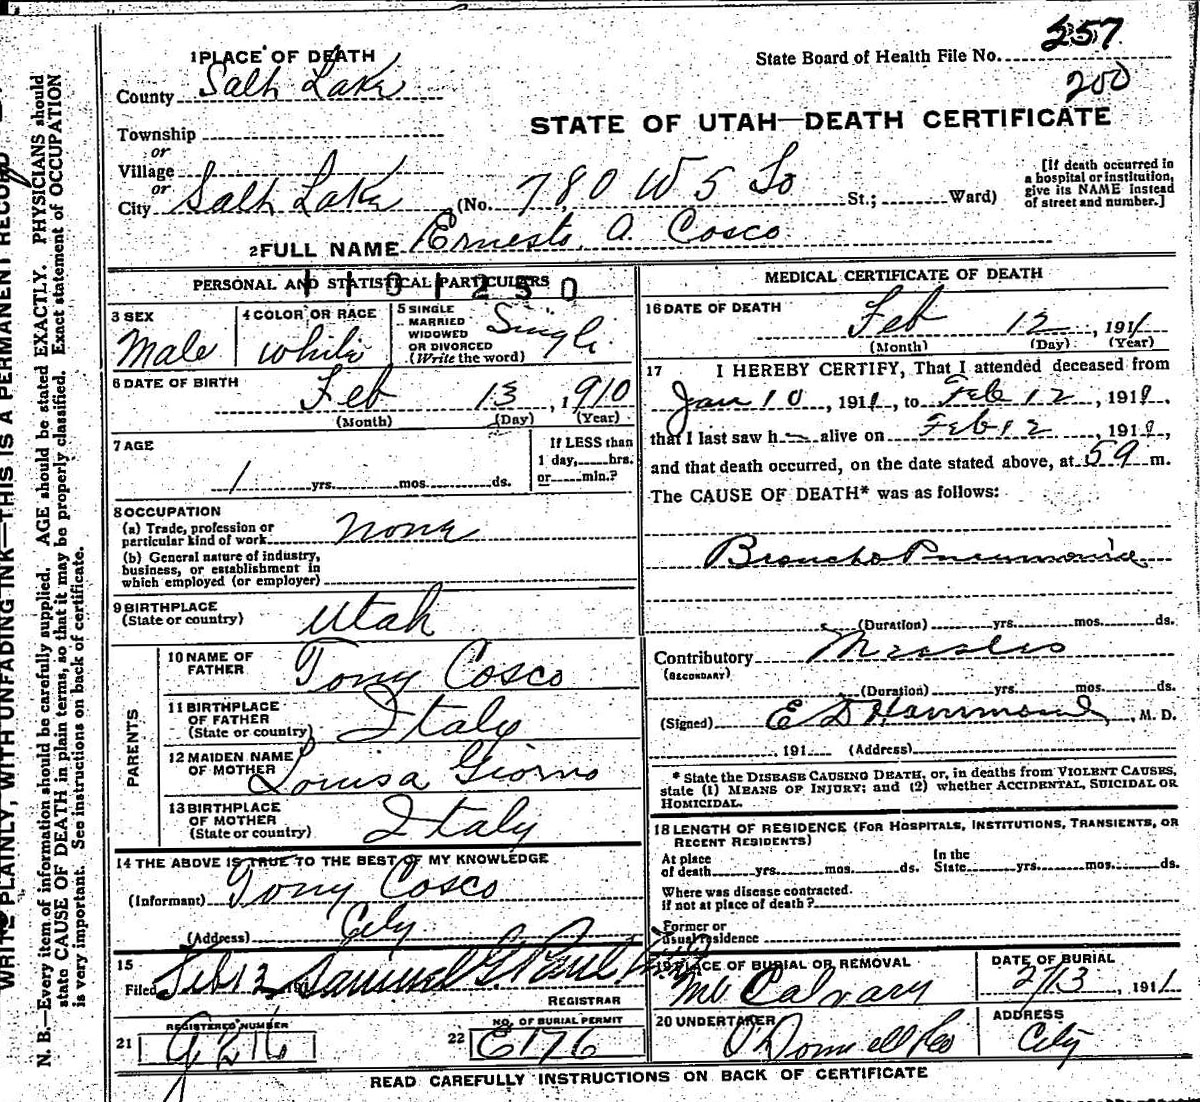 257
State Board of Health File No.
200
1 PLACE OF DEATH
County Salt Lake
STATE OF UTAH—DEATH CERTIFICATE
Township
or
Village
or
City Salt Lake (No. 780 W 5 So St.; Ward)
[If death occurred in
a hospital or institution,
give its NAME instead
of street and number.]
2 FULL NAME Ernesto. A. Cosco
PERSONAL AND STATISTICAL PARTICULARS
1101250
3 SEX Male
4 COLOR OR RACE White
5 SINGLE
MARRIED
WIDOWED
OR DIVORCED
(Write the word) Single
6 DATE OF BIRTH
Feb 13, 1910
(Month) (Day) (Year)
7 AGE
1 yrs. mos. ds.
If LESS than
1 day, hrs.
or min.?
8 OCCUPATION
(a) Trade, profession or
particular kind of work None
(b) General nature of industry,
business, or establishment in
which employed (or employer)
9 BIRTHPLACE
(State or country) Utah
PARENTS
10 NAME OF
FATHER Tony Cosco
11 BIRTHPLACE
OF FATHER
(State or country) Italy
12 MAIDEN NAME
OF MOTHER Louisa Giorno
13 BIRTHPLACE
OF MOTHER
(State or country) Italy
14 THE ABOVE IS TRUE TO THE BEST OF MY KNOWLEDGE
(Informant) Tony Cosco
(Address) City
15
Filed Feb 12 Samuel G. Paul
REGISTRAR
21 REGISTERED NUMBER
22 NO. OF BURIAL PERMIT
E176
MEDICAL CERTIFICATE OF DEATH
16 DATE OF DEATH
Feb 12, 1911
(Month) (Day) (Year)
17 I HEREBY CERTIFY, That I attended deceased from
Jan 10, 1911, to Feb 12, 1911,
that I last saw h alive on Feb 12, 1911,
and that death occurred, on the date stated above, at 59 m.
The CAUSE OF DEATH* was as follows:
Broncho Pneumonia
(Duration) yrs. mos. ds.
Contributory Measles
(SECONDARY)
(Duration) yrs. mos. ds.
(Signed) E D Hammond, M. D.
191 (Address)
* State the DISEASE CAUSING DEATH, or, in deaths from VIOLENT CAUSES,
state (1) MEANS OF INJURY; and (2) whether ACCIDENTAL, SUICIDAL OR
HOMICIDAL.
18 LENGTH OF RESIDENCE (FOR HOSPITALS, INSTITUTIONS, TRANSIENTS, OR
RECENT RESIDENTS)
At place
of death yrs. mos. ds.
In the
State yrs. mos. ds.
Where was disease contracted.
if not at place of death?
Former or
usual residence
19 PLACE OF BURIAL OR REMOVAL
Mt Calvary
DATE OF BURIAL
2/13, 1911
20 UNDERTAKER
O'Donnell & Co
ADDRESS
City
READ CAREFULLY INSTRUCTIONS ON BACK OF CERTIFICATE
WRITE PLAINLY, WITH UNFADING INK—THIS IS A PERMANENT RECORD
N. B.—Every item of information should be carefully supplied. AGE should be stated EXACTLY. PHYSICIANS should
state CAUSE OF DEATH in plain terms, so that it may be properly classified. Exact statement of OCCUPATION
is very important. See instructions on back of certificate.